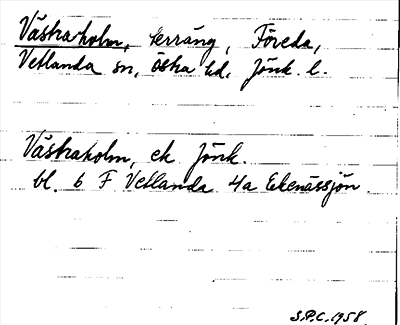 Västraholm, terräng, Föreda,
Vetlanda sn, östra hd, Jönk. l.
Västraholm, ek Jönk.
bl. 6 F Vetlanda 4a Ekenässjön.
S.P.C. 1958.